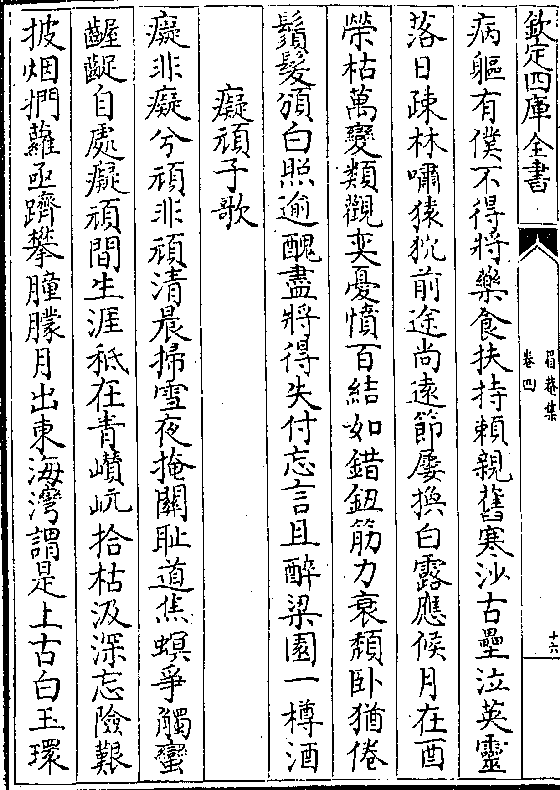 欽定四庫全書
眉菴集
卷四
十六
病軀有僕不得將藥食扶持賴親舊寒沙古壘泣英靈
落日疎林嘯猿狖前途尚遠節屢換白露應候月在酉
榮枯萬變類觀奕憂憤百結如錯鈕筋力衰頹卧猶倦
鬚髮頒白照逾醜盡將得失付忘言且醉梁園一樽酒
癡頑子歌
癡非癡兮頑非頑清晨掃雪夜掩關耻道焦螟爭觸蠻
齷齪自處癡頑間生涯秪在青巑岏拾枯汲深忘險艱
披烟捫蘿亟躋攀朣朦月出東海灣謂是上古白玉環